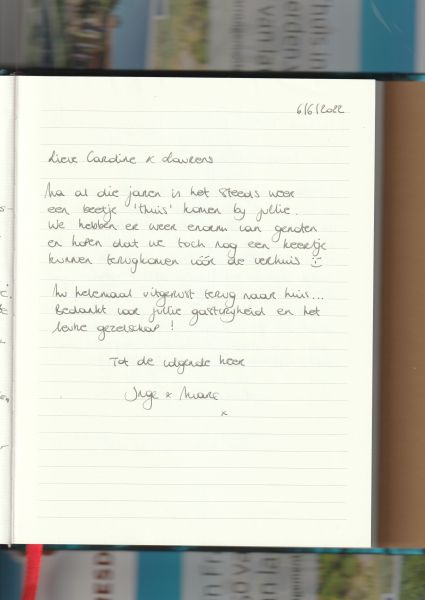 6/6/2022
Lieve Caroline & Laurens
Na al die jaren is het steeds weer
een beetje 'thuis' komen by jullie.
We hebben er weer enorm van genoten
en hopen dat we toch nog een keertje
kunnen terugkomen vóór de verhuis
Nu helemaal uitgerust terug naar huis...
Bedankt voor jullie gastvrijheid en het
leuke gezelschap!
Tot de volgende keer
Inge & Marc
x